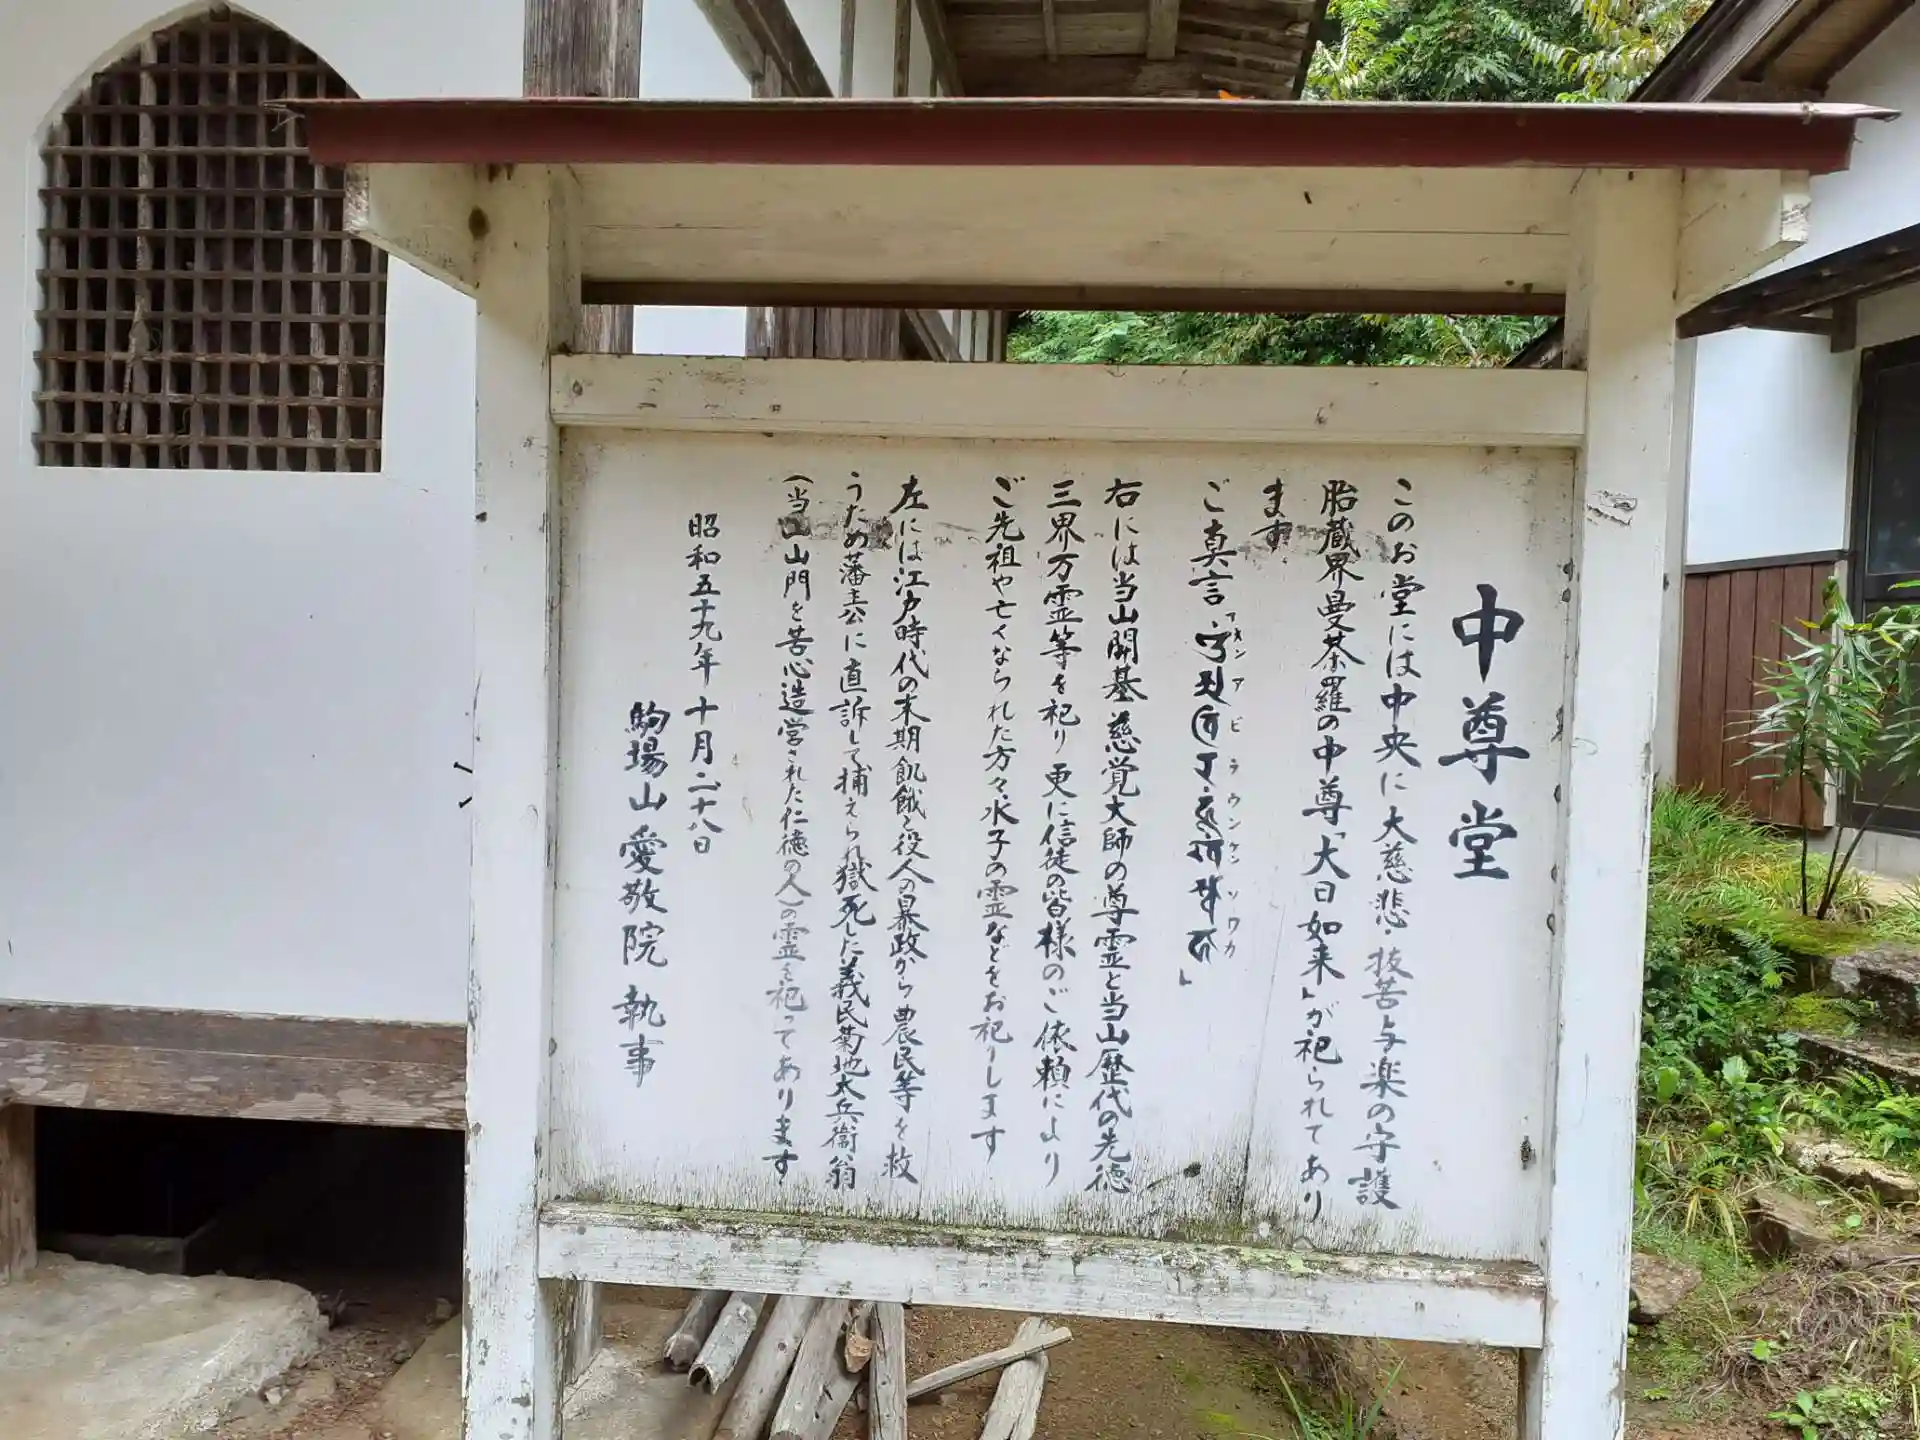 中尊堂
このお堂には中央に大慈悲・抜苦与楽の守護
胎蔵界曼荼羅の中尊「大日如来」が祀られてあり
ます
ご真言「
アビラウンケンソワカ
」
右には当山開基慈覚大師の尊霊と当山歴代の先徳
三界万霊等を祀り更に信徒の皆様のご依頼により
ご先祖や亡くなられた方々、水子の霊などをお祀りします
左には江戸時代の末期飢餓と役人の暴政から農民等を救
うため藩主公に直訴して捕えられ獄死した義民菊地太兵衞翁
(当山山門を苦心造営された仁徳の人)の霊を祀ってあります
昭和五十九年十月二十八日
駒場山愛敬院執事